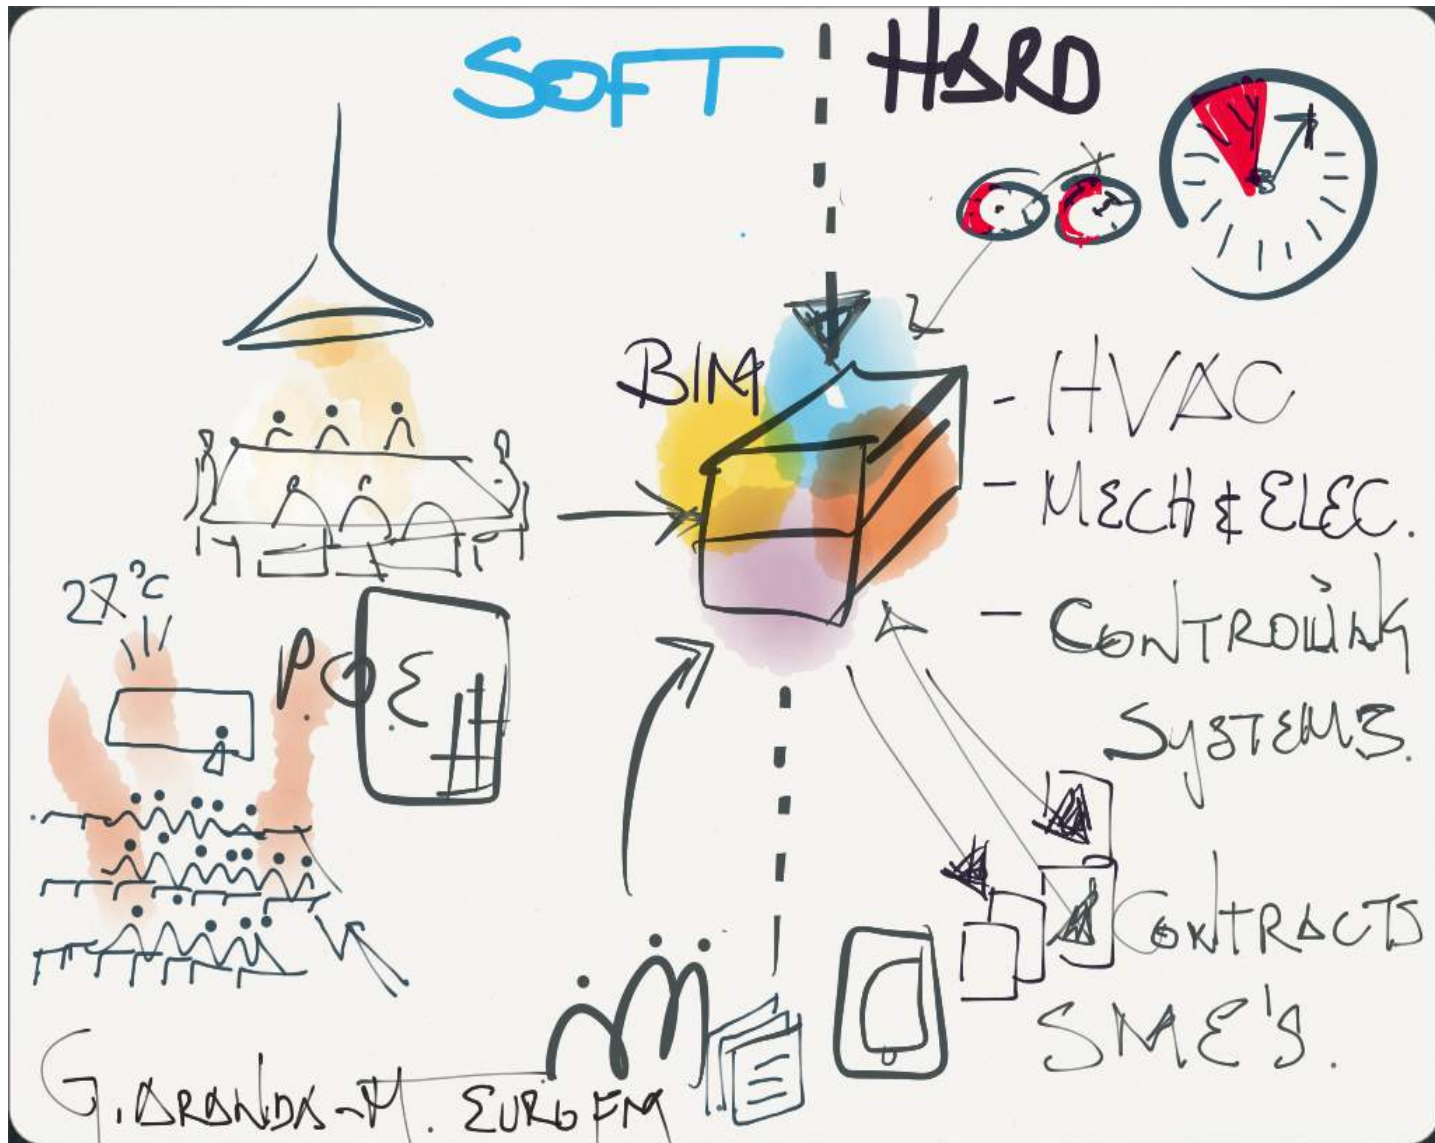 SOFT
HARD
BIM
- HVAC
- MECH & ELEC.
- CONTROLING
SYSTEMS.
27°C
P.O.E
CONTRACTS
SME'S.
G. ARANDA-M. EUROFM